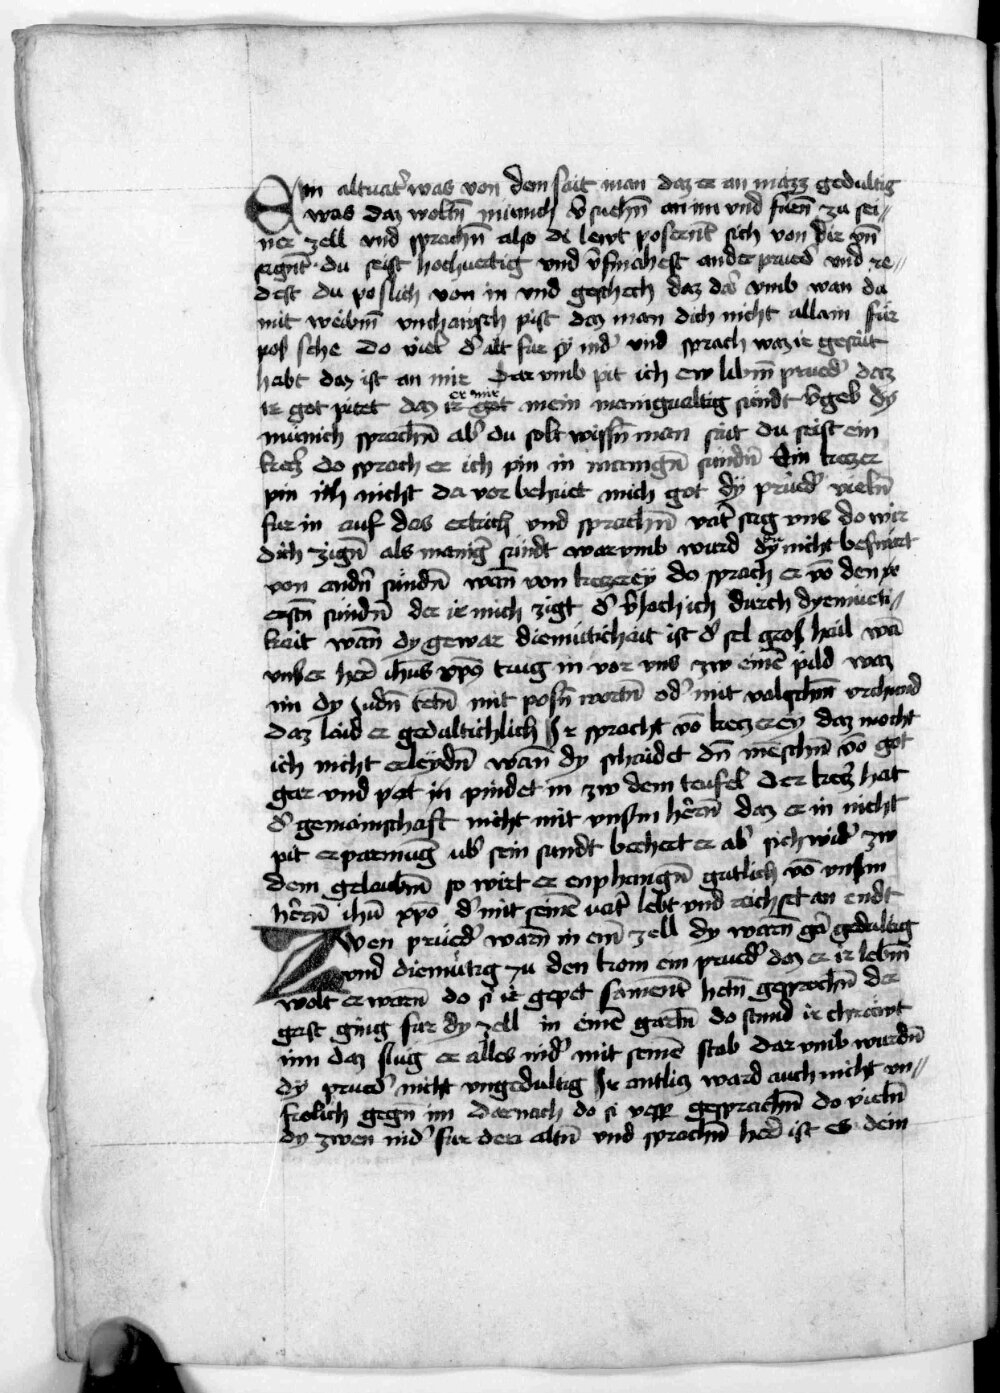 Ein altuat' was von dem sait man daz er an mazz gedultig
was daz woltn̄ münich v'suechn̄ an im vnd fuen̄ zu sei=
ner zell vnd sprachn̄ also di lewt posernt sich von dir vn̄
du seist hochuertig vnd v'smahest ander prued' vnd re=
dest du poslich von in vnd geschech daz dar vmb wan du
mit weibm̄ vncheusch pist daz man dich nicht allain für
pos sche do viel d' alt fur sy nid' vnd sprach waz ir gesait
habt daz ist an mir Dar vmb pit ich ew libm̄ prued' daz
ir got pitet daz er mir mein manigualtig sündt v'geb dy
münich sprachn̄ ab' du solt wissn̄ man sait du seist ein
ketz' do sprach er ich pin in manign̄ sundn̄ Ein ketzer
pin ich nicht da vor behuet mich got dy prüed' vieln̄
fur in auf das ertrich vnd sprachn̄ vat' sag vns do wir
dich zign̄ als manig' sündt warvmb wurd dy nicht beswärt
von andn̄ sündn̄ wan̄ von ketzerey do sprach er vō den
erstn̄ sündn̄ der ir mich zigt d' v'sach ich durch dyemueti=
keit wan̄ dy gewar diemütichait ist d' sel gros hail wā
vnser her' ihūs xp̄s trug in vor vns zw einē pild waz
im dy Judn̄ tetn̄ mit posn̄ wortn̄ od' mit valschm̄ vrchund
daz laid er gedultichlich Ir spracht vō ketzerey daz mocht
ich nicht erleydn̄ wan̄ dy schaidet dn̄ meschn̄ vō got
gar vnd pint in zw dem teufel Der ketz' hat
d' gemainschaft nicht mit vnsm̄ hern̄ daz er in nicht
pit erparmūg ub' sein sundt bechert er ab' sich wid' zw
dem gelaubm̄ so wirt er enphangn̄ gutlich vō vnsm̄
hern̄ ihū xpō d' mit seinē vat' lebt vnd reichset an endt
Zwen prüed' warn̄ in ein' zell dy warn̄ gar gedultig
vnd diemütig zu den kom ein prued' daz er ir lebm̄
wolt erwarn̄ do si ir gepet samēt hetn̄ gesprochn̄ der
gast ging fur dy zell in einē gartn̄ do stund ir chräwt
inn daz slug er alles nid' mit seinē stab Dar vmb wurdn̄
dy prued' nicht vngedultig Ir antlitz ward auch nicht vn=
frolich gegn im Darnach do si vesp' gesprachn̄ do vieln̄
dy zwen nid' fur den altn̄ vnd sprachn̄ her' ist es dein